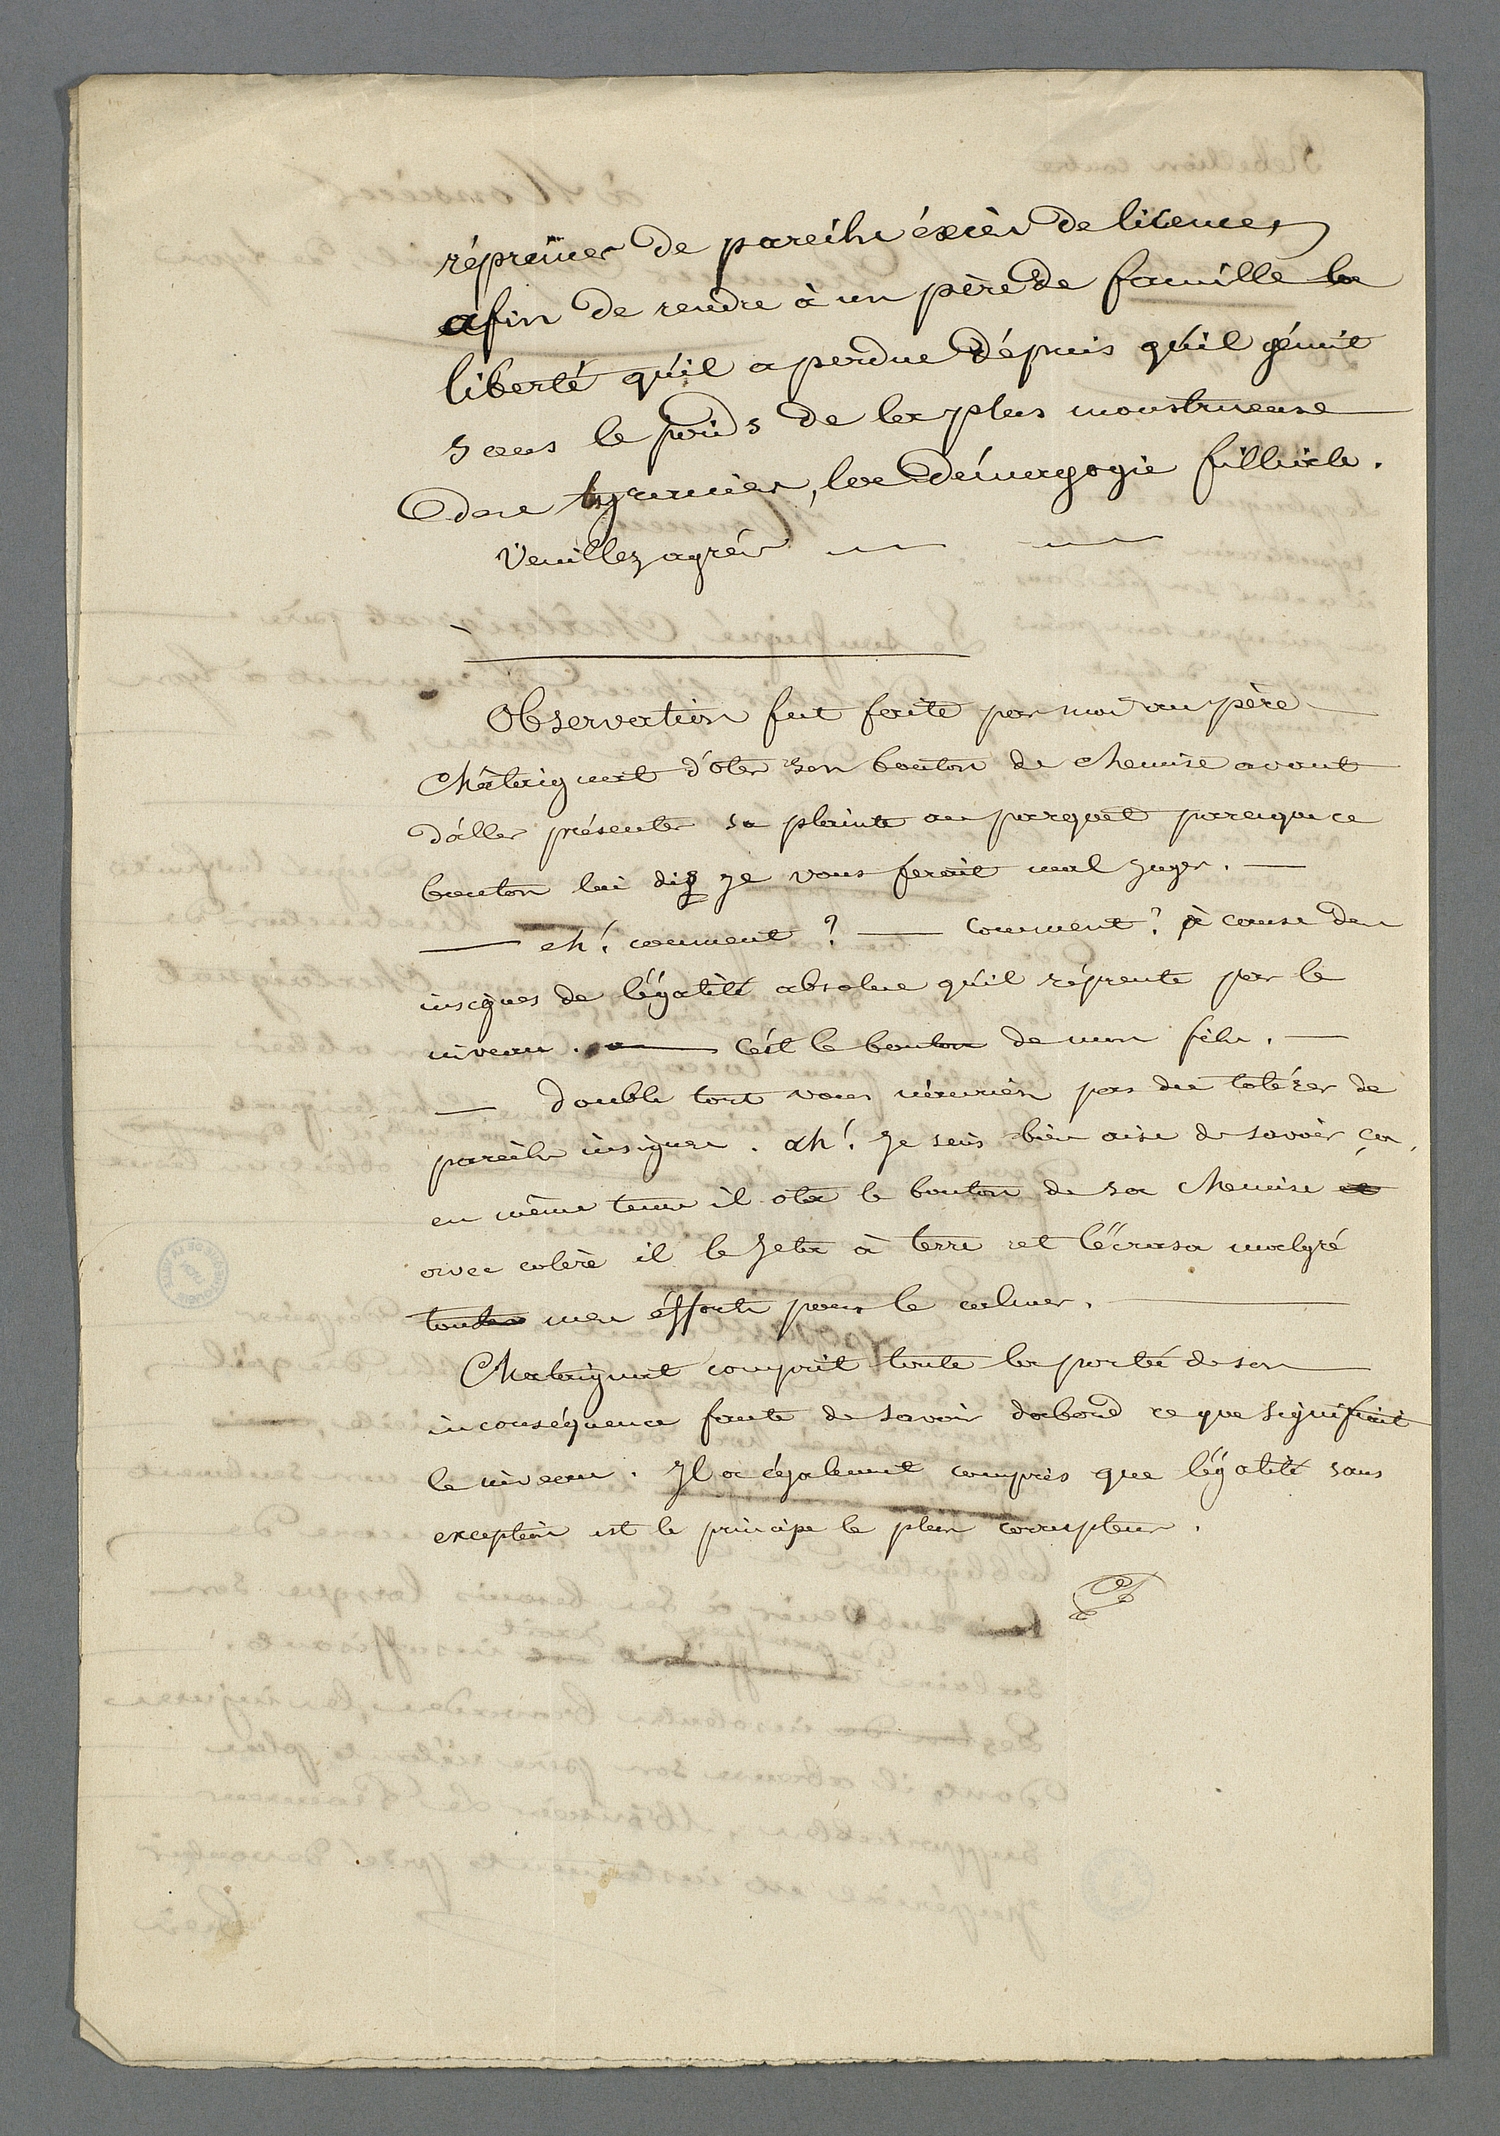 réprimer de pareils éxcès de licences
afin de rendre à un père de famille la
liberté qu'il a perdue dépuis qu'il gémit
sous le poids de la plus monstrueuse
des tyrannies, la démagogie filliale.
Veuillez agréer
Observation fut faite par moi au père
Châtaignat d'ôter son bouton de chemise avant
d'aller présenter sa plainte au parquet parceque ce
bouton lui dis je vous ferait mal juger. —
— eh! comment? — comment? à cause des
insignes de l'égalité absolue qu'il réprente par le
niveau. — C'est le bouton de mon fils. —
— double tort vous n'auriez pas du tolérer de
pareils insignes. ah! je suis bien aise de savoir ça,
en même tems il ota le bouton de sa chemise et
avec colère il le jeta à terre et l'écrasa malgré
toutes mes éfforts pour le calmer. —
Chataignat comprit toute la portée de son
inconséquence faute de savoir dabord ce que signifiait
le niveau. Il a également compris que l'égalité sans
exception est le principe le plus corrupteur.